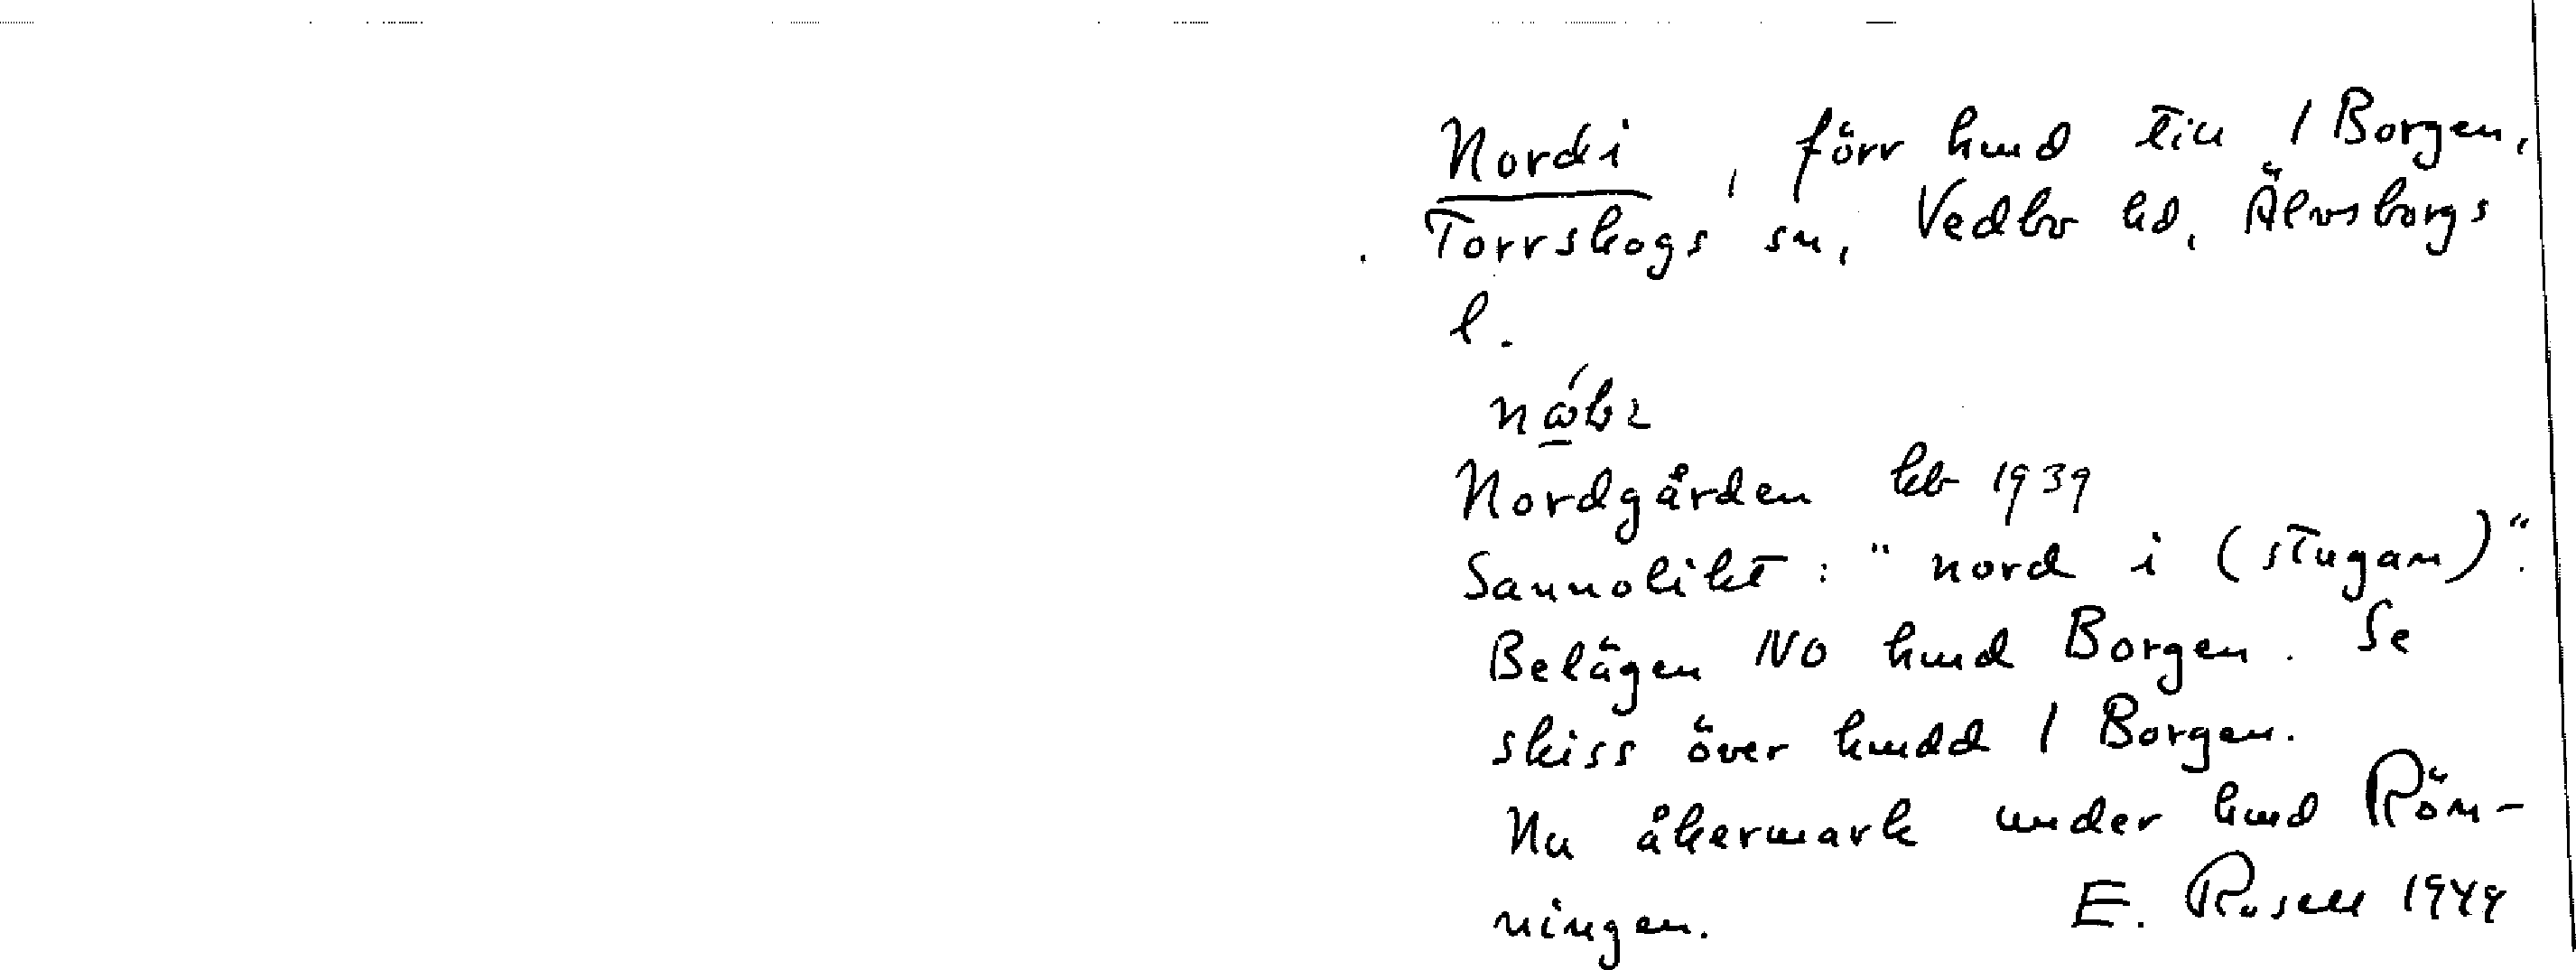 Nordi, förr hmd till 1 Borgen,
Torrskogs sn, Vedbo hd, Älvsborgs
l.
Nordgården kb 1939
Sannolikt: "nord i (stugan)".
Belägen NO hmd Borgen. Se
skiss över hmdd 1 Borgen.
Nu åkermark under hmd Röm-
ningen. E. Rosell